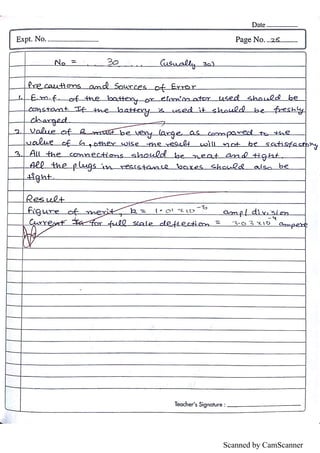 Date
Expt. No.
Page No. 25
No = 30 (usually 30)
Precautions and Sources of Error
1. E.m.f. of the battery or eliminator used should be
constant. If the battery is used it should be freshly
charged.
2. Value of R must be very large as compared to the
value of G, other wise the result will not be satisfactory
3. All the connections should be neat and tight.
All the plugs in resistance boxes should also be
tight.
Result
Figure of merit, k = 1.01 × 10⁻⁵ amp/ division
Current for full scale deflection = 3.03 × 10⁻⁴ ampere
Teacher's Signature :
Scanned by CamScanner